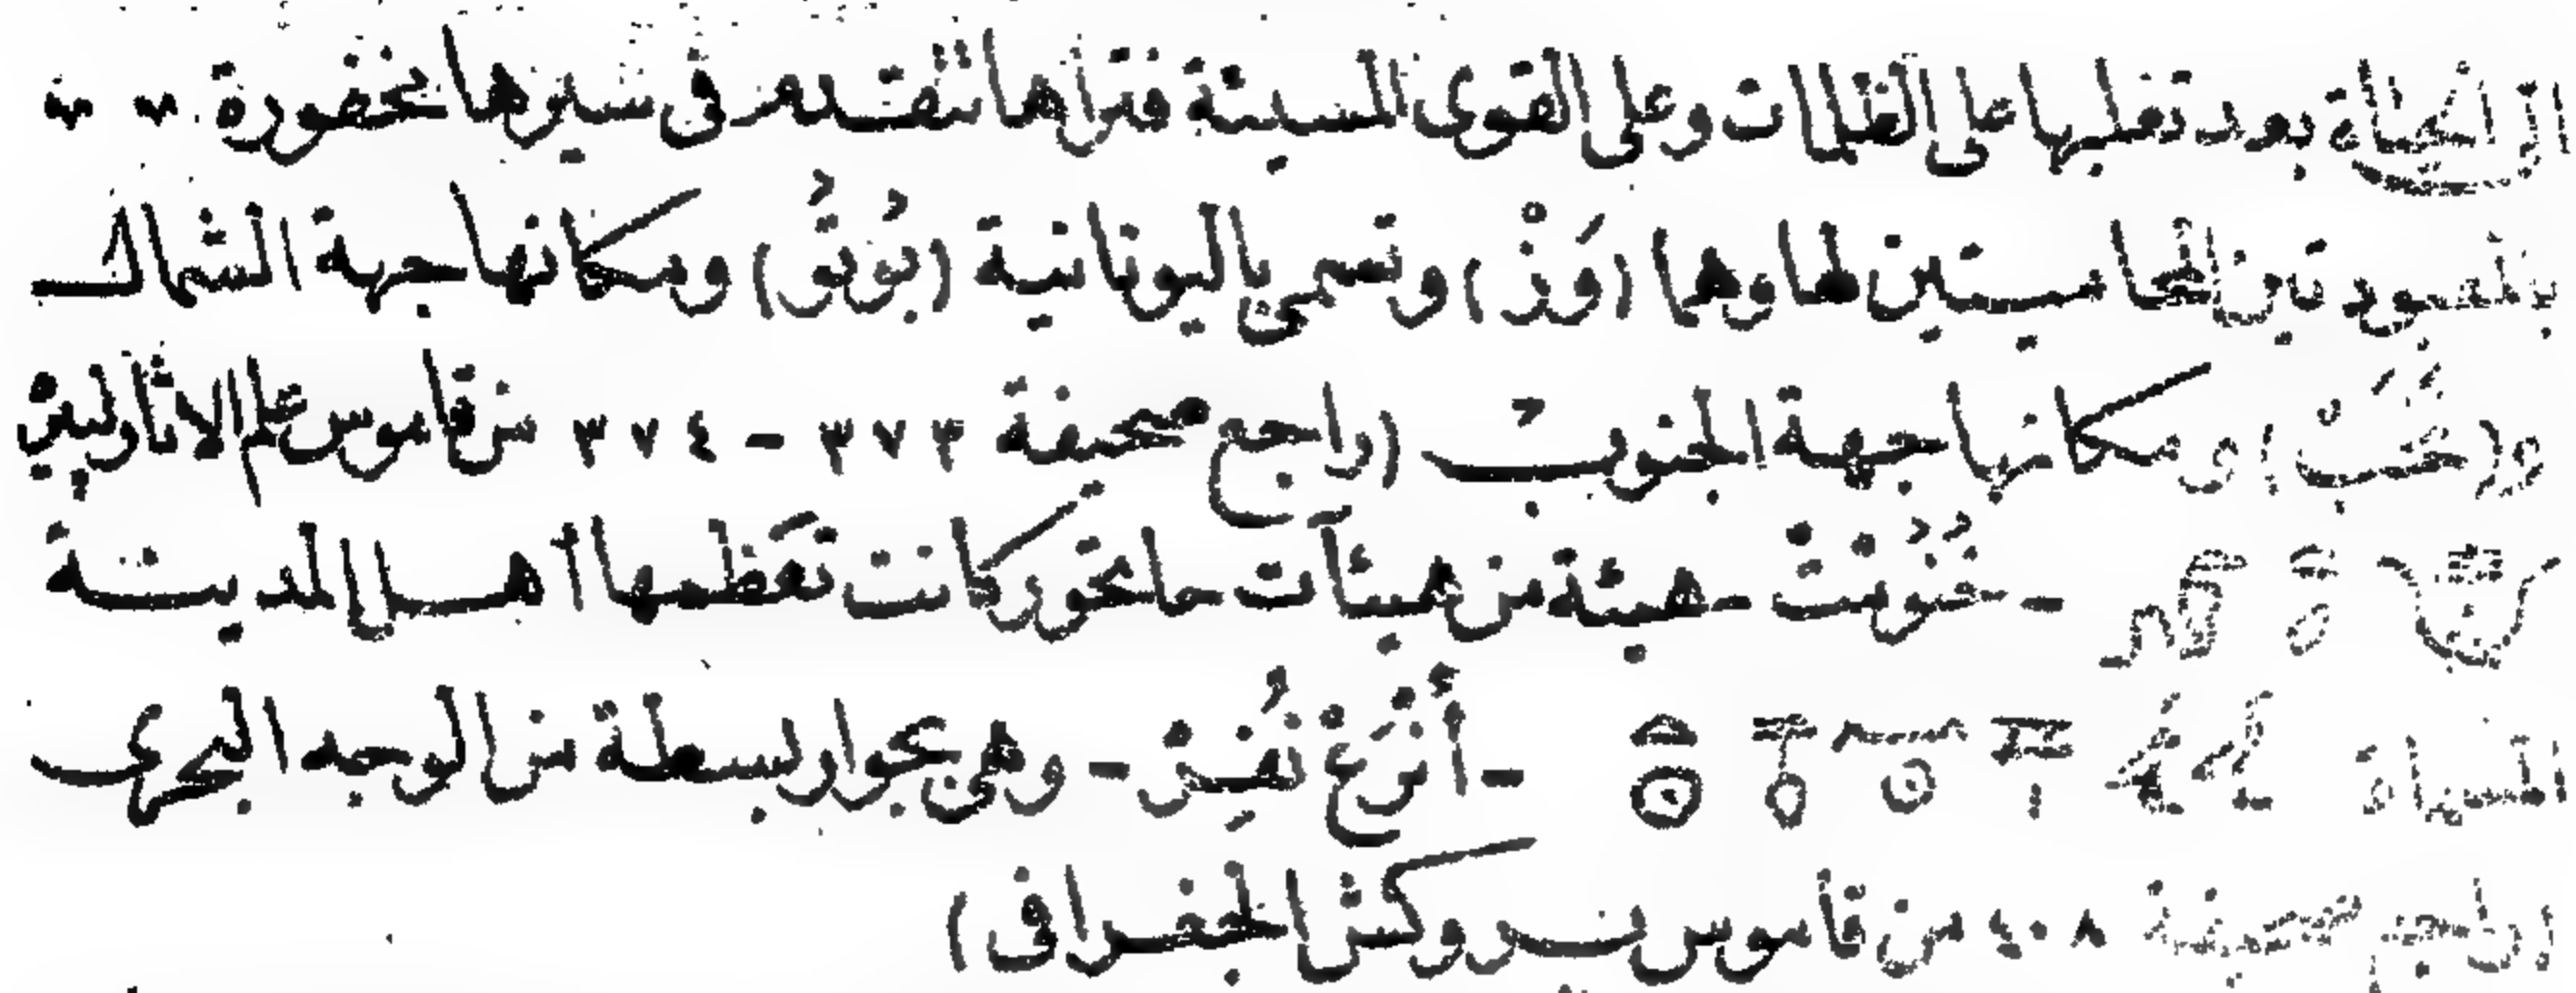 الى الحياة بعد تغلبها على الظلمات وعلى القوى المسيئة فتراها تتقدم فى سيرها مخفورة
بالمعبودتين المحاميتين لها وهما (وَزْ) وتسمى باليونانية (بُوتُو) ومكانها جهة الشمال
و(نُخَبْ) ومكانها جهة الجنوب (راجع صحيفة ٣٧٣ - ٣٧٤ من قاموس علم الاثار لبييرّ
- خُنُومْتْ - هيئة من هيئآت حاتحور كانت تعَظمها أهل المدينة
المسماة - أَنْرَعْ نُفِرْ - وهى بجوار بسطة من الوجه البحرى
(راجع صحيفة ٤٠٨ من قاموس بروكش الجغرافى)